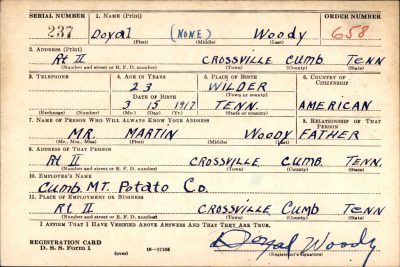 SERIAL NUMBER 1. NAME (Print) ORDER NUMBER
237 Doyal (NONE) Woody 658
(First) (Middle) (Last)
2. ADDRESS (Print)
Rt II CROSSVILLE CUMB. TENN
(Number and street or R. F. D. number) (Town) (County) (State)
3. TELEPHONE 4. AGE IN YEARS 5. PLACE OF BIRTH 6. COUNTRY OF CITIZENSHIP
23 WILDER
DATE OF BIRTH (Town or county)
3 15 1917 TENN. AMERICAN
(Exchange) (Number) (Mo.) (Day) (Yr.) (State or country)
7. NAME OF PERSON WHO WILL ALWAYS KNOW YOUR ADDRESS 8. RELATIONSHIP OF THAT PERSON
MR. MARTIN WOODY FATHER
(Mr., Mrs., Miss) (First) (Middle) (Last)
9. ADDRESS OF THAT PERSON
Rt II CROSSVILLE CUMB. TENN.
(Number and street or R. F. D. number) (Town) (County) (State)
10. EMPLOYER'S NAME
Cumb. MT. Potato Co.
11. PLACE OF EMPLOYMENT OR BUSINESS
Rt II CROSSVILLE Cumb TENN
(Number and street or R. F. D. number) (Town) (County) (State)
I AFFIRM THAT I HAVE VERIFIED ABOVE ANSWERS AND THAT THEY ARE TRUE.
REGISTRATION CARD
D. S. S. Form 1 (over) 16—17105 Doyal Woody
(Registrant's signature)